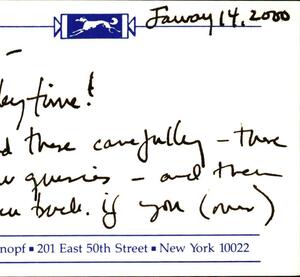 Janury 14, 2000
-
key time!
d these carefully - there
w queries - and then
em back. if you (over)
nopf ▪ 201 East 50th Street ▪ New York 10022